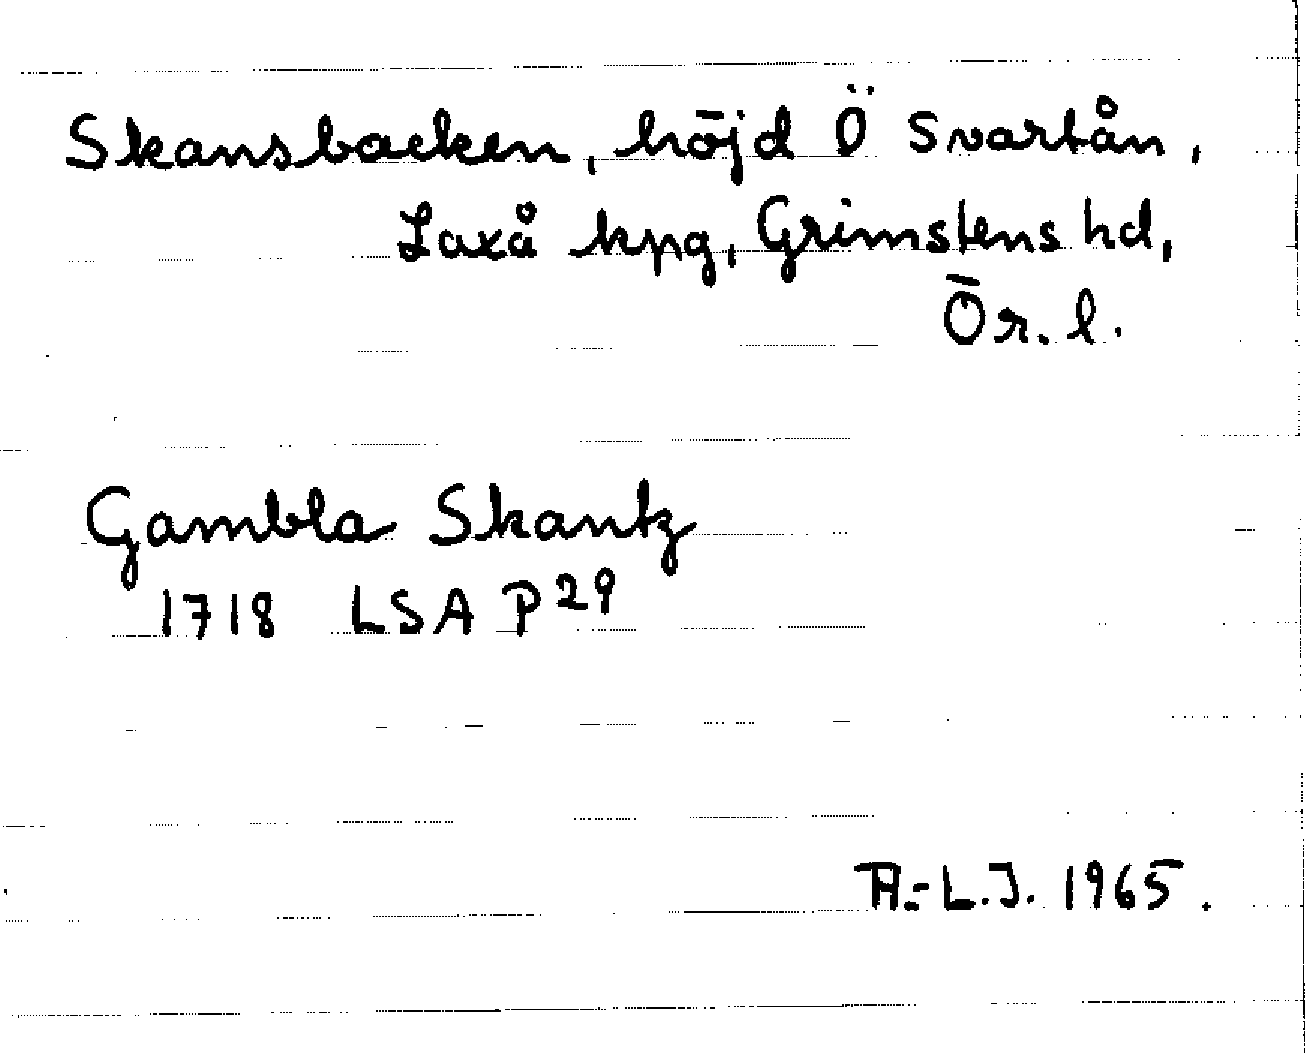 Skansbacken, höjd Ö Svartån,
Laxå kpg, Grimstens hd,
Ör. l.
Gambla Skantz
1718 LSA P29
A.-L.J. 1965.